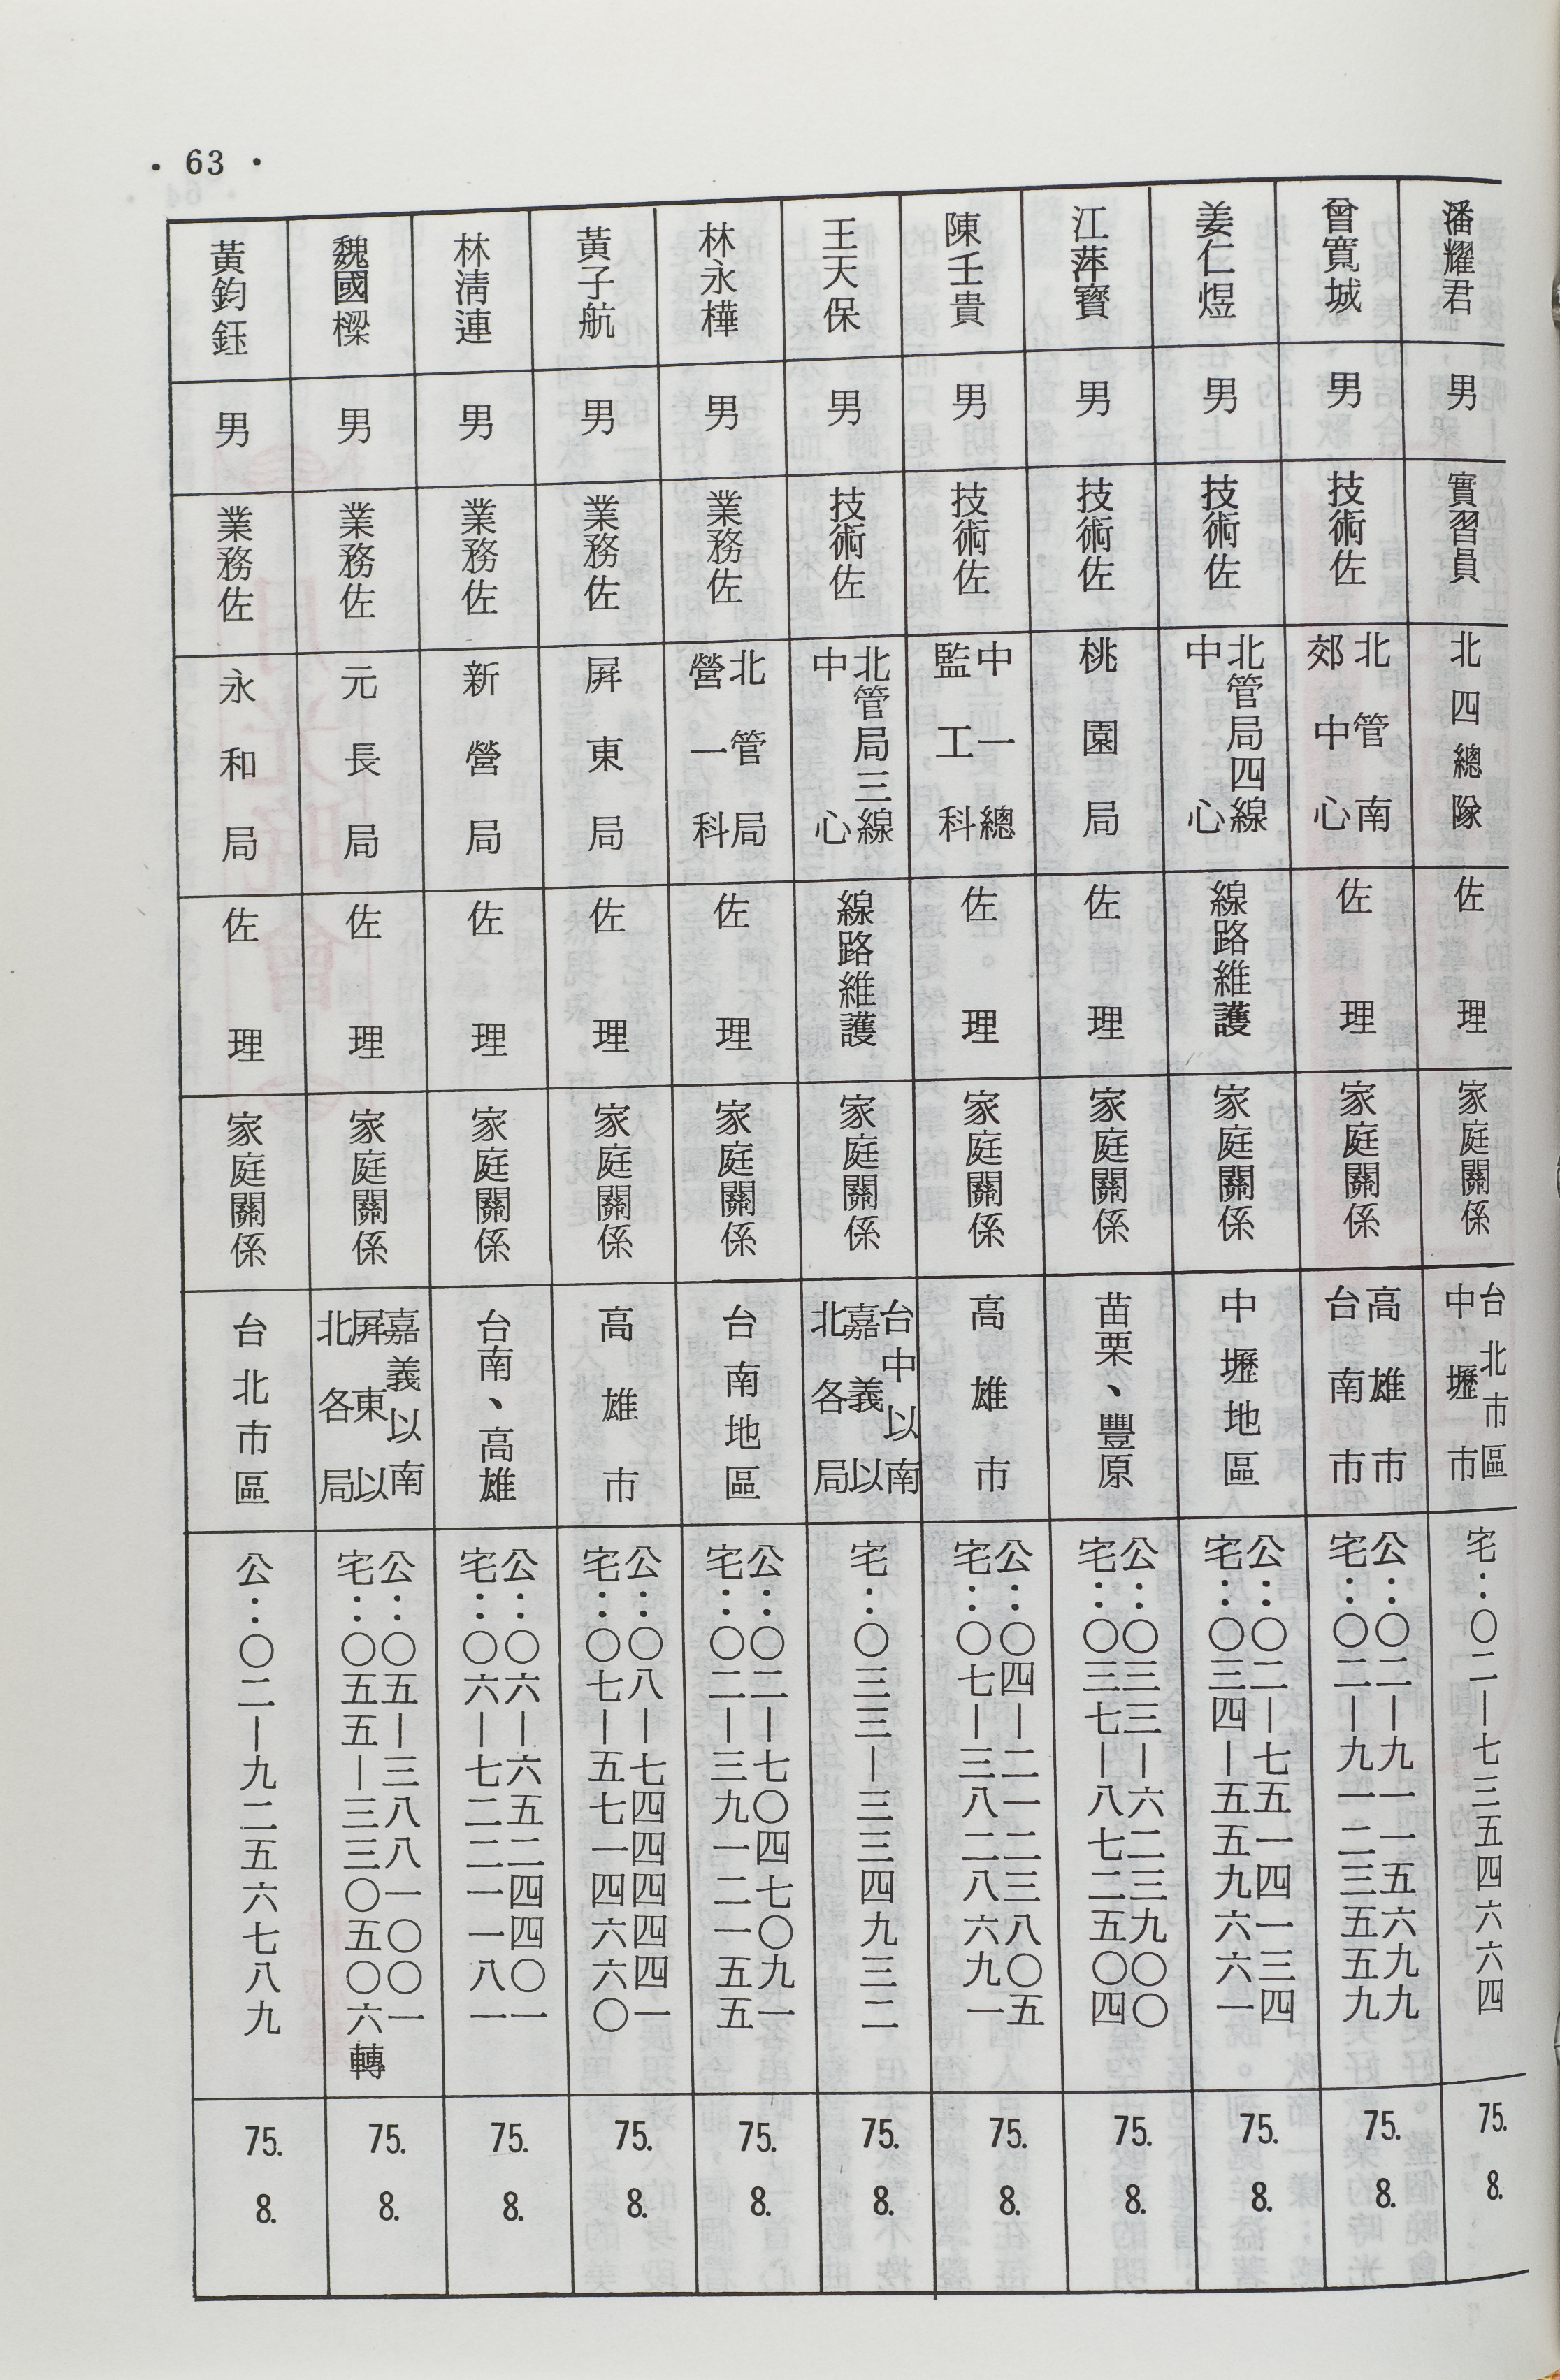 • 63 •
潘耀君
男
實習員
北四總隊
佐理
家庭關係
台北市區
中壢市
宅：〇二—七三五四六六四
75.
8.
曾寬城
男
技術佐
北管南
郊中心
佐理
家庭關係
高雄市
台南市
公：〇二—九一一五六九九
宅：〇二—九一二三五五九
75.
8.
姜仁煜
男
技術佐
北管局四線
中心
線路維護
家庭關係
中壢地區
公：〇二—七五一四一三四
宅：〇三四—五五九六六一
75.
8.
江萍寶
男
技術佐
桃園局
佐理
家庭關係
苗栗、豐原
公：〇三三—六二三九〇〇
宅：〇三七—八七二五〇四
75.
8.
陳壬貴
男
技術佐
中一總
監工科
佐理
家庭關係
高雄市
公：〇四—二一二三八〇五
宅：〇七—三八二八六九一
75.
8.
王天保
男
技術佐
北管局三線
中心
線路維護
家庭關係
台中以南
嘉義以
北各局
宅：〇三三—三三四九三二
75.
8.
林永樺
男
業務佐
北管局
營一科
佐理
家庭關係
台南地區
公：〇二—七〇四七〇九一
宅：〇二—三九一二一五五
75.
8.
黃子航
男
業務佐
屏東局
佐理
家庭關係
高雄市
公：〇八—七四四四四四一
宅：〇七—五七一四六六〇
75.
8.
林清連
男
業務佐
新營局
佐理
家庭關係
台南、高雄
公：〇六—六五二四四〇一
宅：〇六—七二二一一八一
75.
8.
魏國樑
男
業務佐
元長局
佐理
家庭關係
嘉義以南
屏東以
北各局
公：〇五—三八八一〇〇一
宅：〇五五—三三〇五〇六轉
75.
8.
黃鈞鈺
男
業務佐
永和局
佐理
家庭關係
台北市區
公：〇二—九二五六七八九
75.
8.